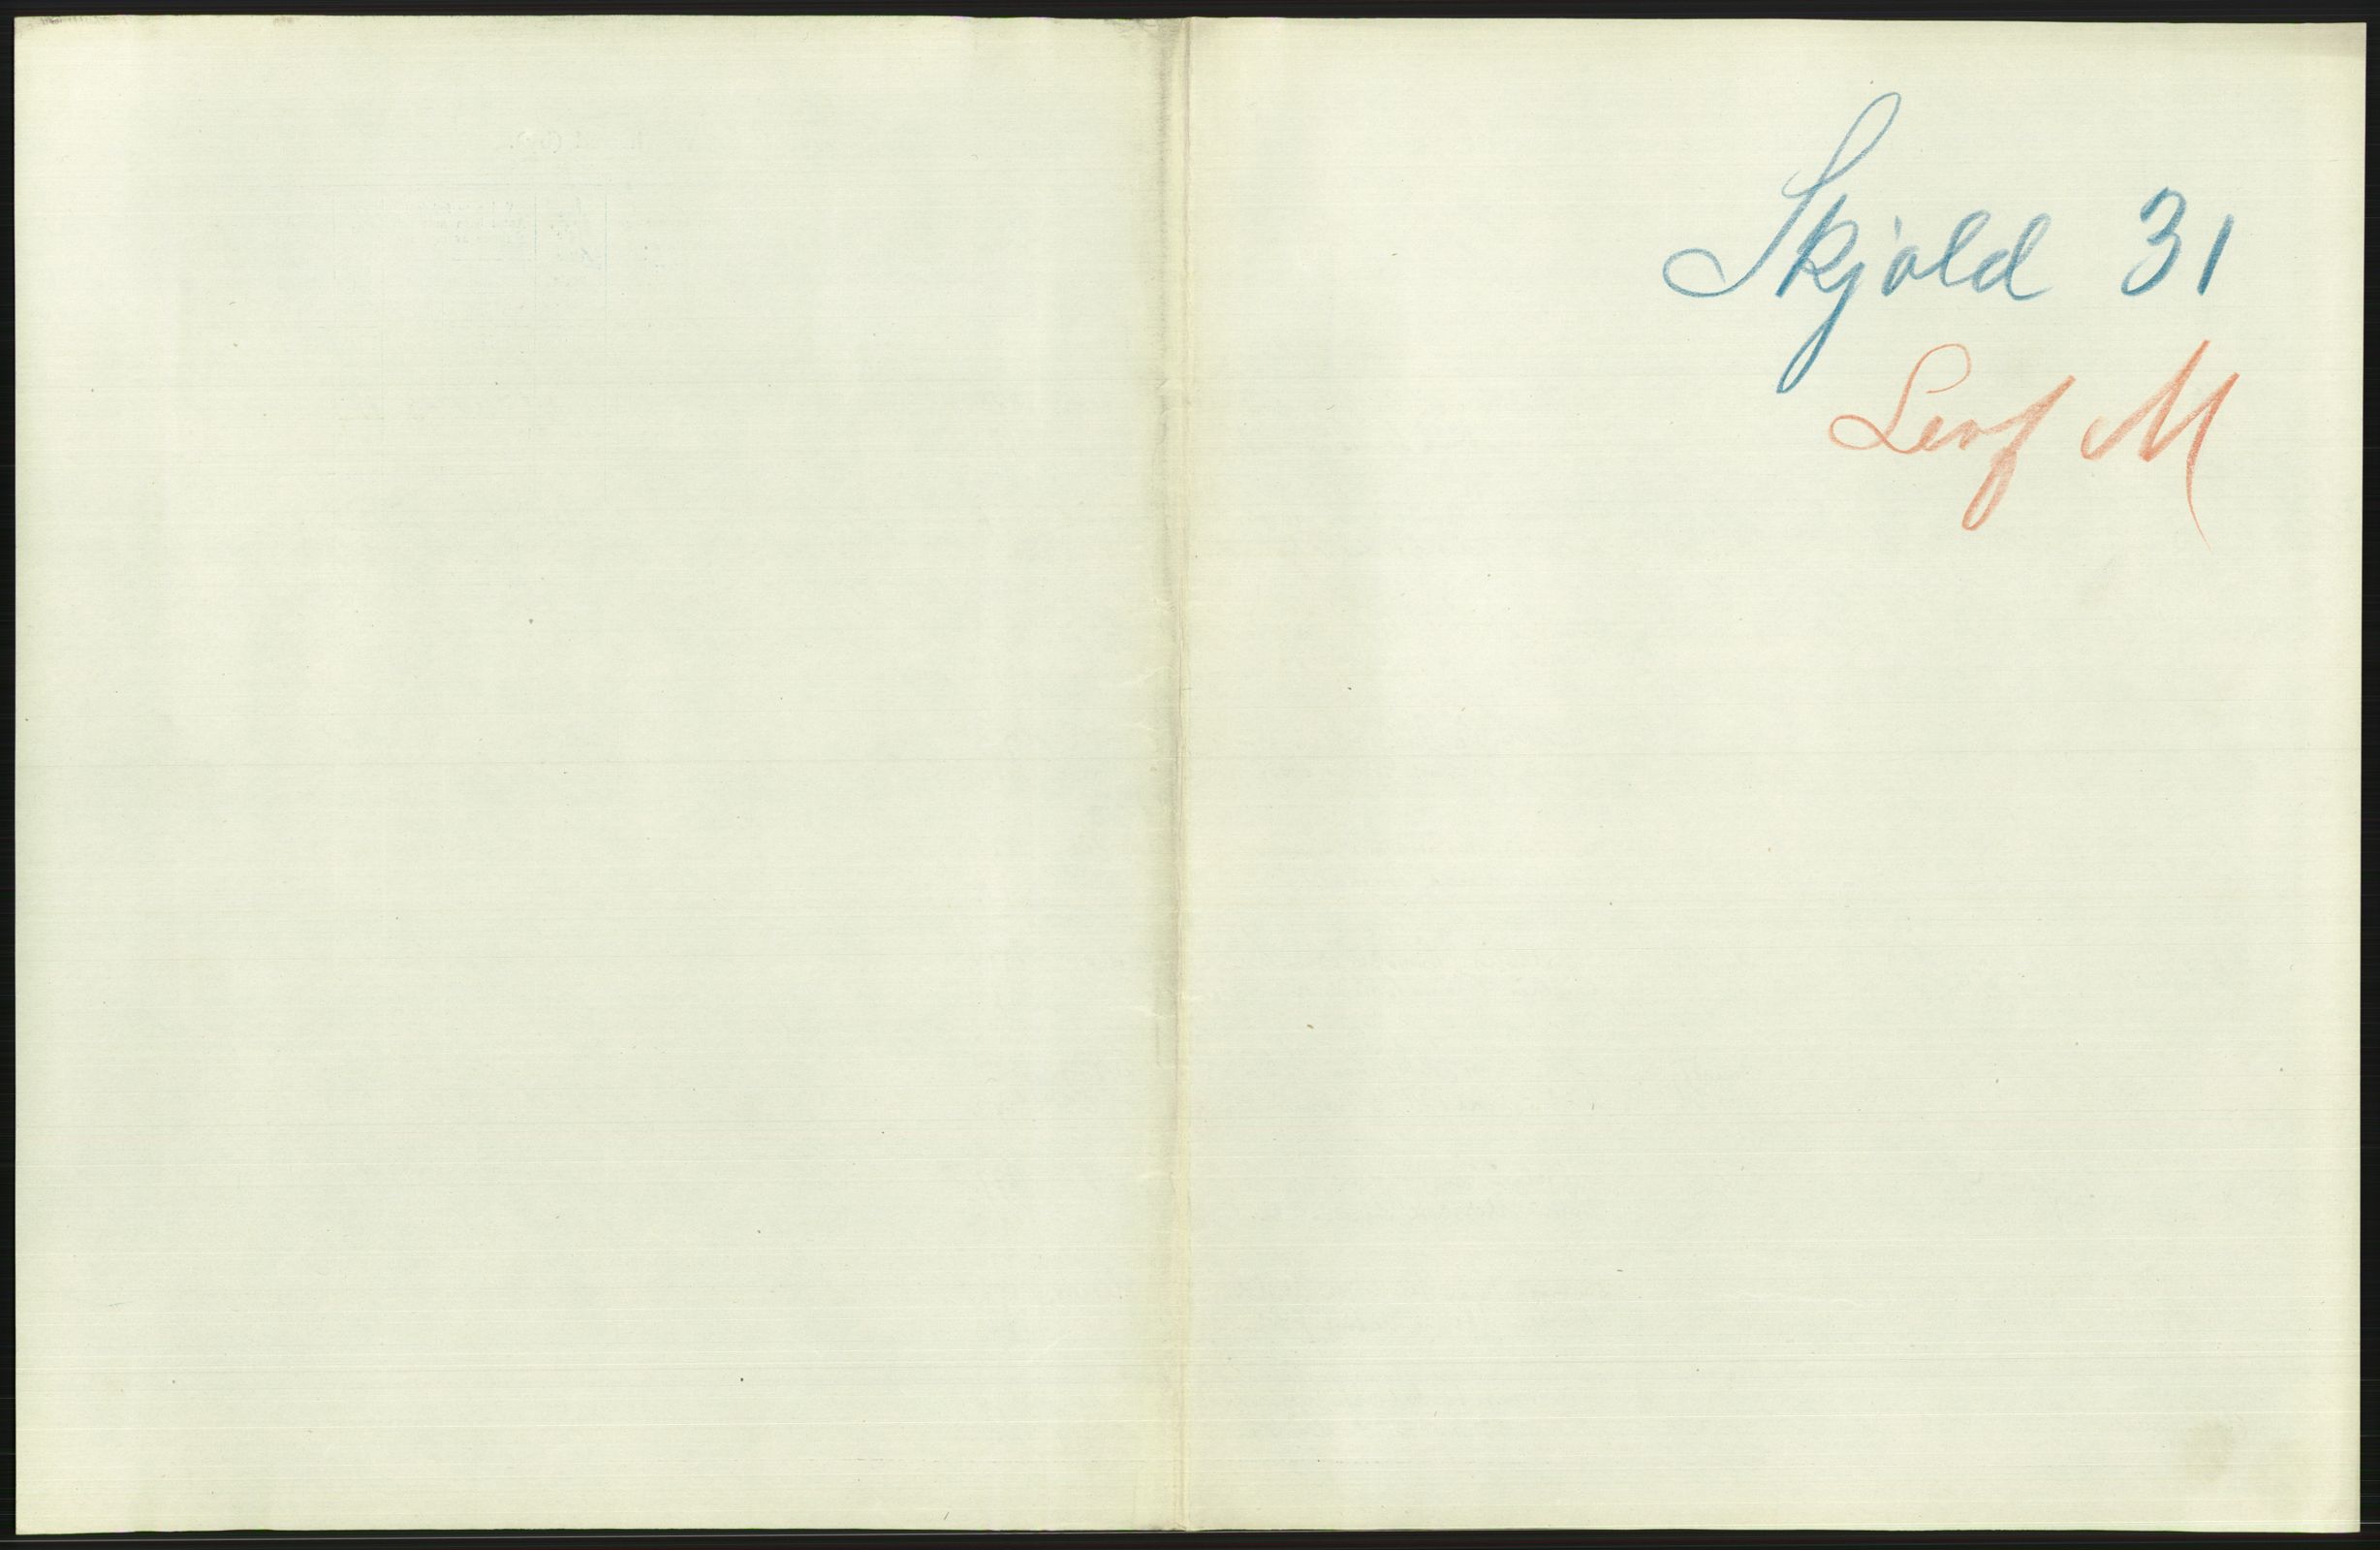 Skjold 31
Leif M